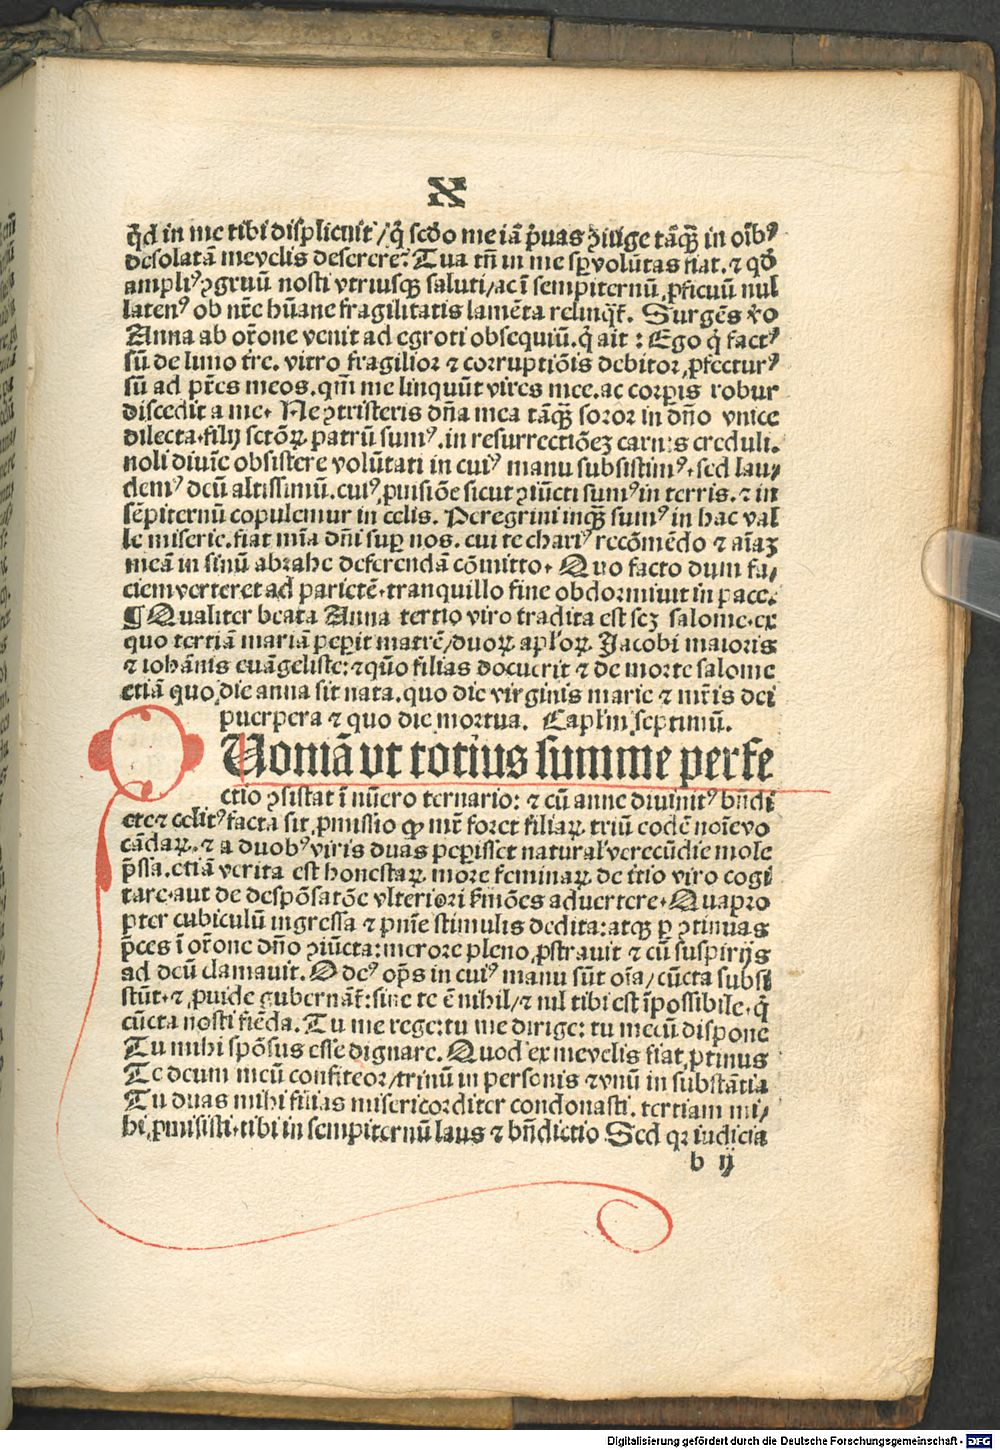 X
qd in me tibi displicuit / q̈ scđo me iã p̄uas ↄiuge tãq̃ꝫ in oĩbꝰ
desolatã me velis deserere? Tua tñ in me sp volũtas fiat. ⁊ qđ
ampliꝰ ↄgruũ nosti vtriusqꝫ saluti / ac ĩ sempiternũ ꝓficuũ nul
latenꝰ ob nr̃e hũane fragilitatis lamẽta relinq̃t. Surgẽs ꝟo
Anna ab or̃one venit ad egroti obsequiũ. q̇ ait : Ego q̇ factꝰ
sũ de limo tr̃e. vitro fragilior ⁊ corruptiõis debitor, ꝓfecturꝰ
sũ ad pr̃es meos. qm̃ me linquũt vires mee. ac corpis robur
discedit a me. Ne ↄtristeris dña mea tãqꝫ soror in dño vnice
dilecta. filij sctõꝝ patrũ sumꝰ. in resurrectiõeꝫ carnis creduli.
noli diuĩe obsistere volũtati in cuiꝰ manu subsistimꝰ. sed lau⸗
demꝰ deũ altissimũ. cuiꝰ ꝓuisiõe sicut ↄiũcti sumꝰ in terris. ⁊ in
sẽpiternũ copulemur in celis. Peregrini inqꝫ sumꝰ in hac val
le miserie. fiat mĩa dñi sup nos. cui te chariꝰ recõmẽdo ⁊ aĩaꝫ
meã in sinũ abrahe deferendã cõmitto. Quo facto dum fa⸗
ciem verteret ad parietẽ. tranquillo fine obdormiuit in pace.
¶ Qualiter beata Anna tertio viro tradita est scꝫ salome. ex
quo tertiã mariã peperit matrẽ / duoꝝ aploꝝ Jacobi maioris
⁊ iohãnis euãgeliste: ⁊ quõ filias docuerit ⁊ de morte salome
etiã quo die anna sit nata. quo die virginis marie ⁊ mr̃is dei
puerpera ⁊ quo die mortua. Caplm septimũ.
Uoniã vt totius summe perfe
ctio ↄsistat ĩ nũero ternario: ⁊ cũ anne diuinitꝰ bñdi
cte ⁊ celitꝰ facta sit ꝓmissio ꝙ mr̃ foret filiaꝝ triũ eodẽ noĩe vo
cãdaꝝ. ⁊ a duobꝰ viris duas peperisset natural' verecũdie mole
p̄ssa. etiã verita est honestaꝝ more feminaꝝ de t̃tio viro cogi
tare. aut de despõsatõe vlteriori f̃mões aduertere. Quapro
pter cubiculũ ingressa ⁊ pnĩe stimulis dedita: atqꝫ p ↄtinuas
p̄ces ĩ or̃one dño ↄiũcta: merore pleno, ꝓstrauit ⁊ cũ suspirijs
ad deũ clamauit. O deꝰ opš in cuiꝰ manu sũt oĩa / cũcta subsi
stũt. ⁊ ꝓuide gubernãt̃: sine te ẽ nihil / ⁊ nil tibi est ĩpossibile. q̇
cũcta nosti fiẽda. Tu me rege: tu me dirige: tu mecũ dispone
Tu mihi spõsus esse dignare. Quod ex me velis fiat, ꝓtinus
Te deum meũ confiteor / trinũ in personis ⁊ vnũ in substãtia
Tu duas mihi filias misericorditer condonasti. tertiam mi⸗
hi ꝓmisisti. tibi in sempiternũ laus ⁊ bñdictio Sed qꝛ iudicia
b ij
Digitalisierung gefördert durch die Deutsche Forschungsgemeinschaft - DFG